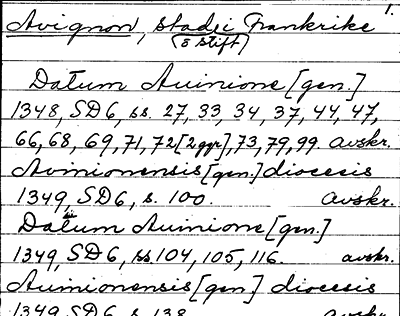 1.
Avignon, stad i Frankrike
(o stift)
Datum Auinione [gen.]
1348, SD6, ss. 27, 33, 34, 37, 44, 47,
66, 68, 69, 71, 72 [2 ggr], 73, 79, 99 avskr.
Avinionensis [gen.] diocesis
1349, SD6, s. 100. avskr.
Datum Auinione [gen.]
1349, SD6, ss 104, 105, 116. avskr.
Auinionensis [gen] diocesis
1349 SD6, s. 138 avskr.